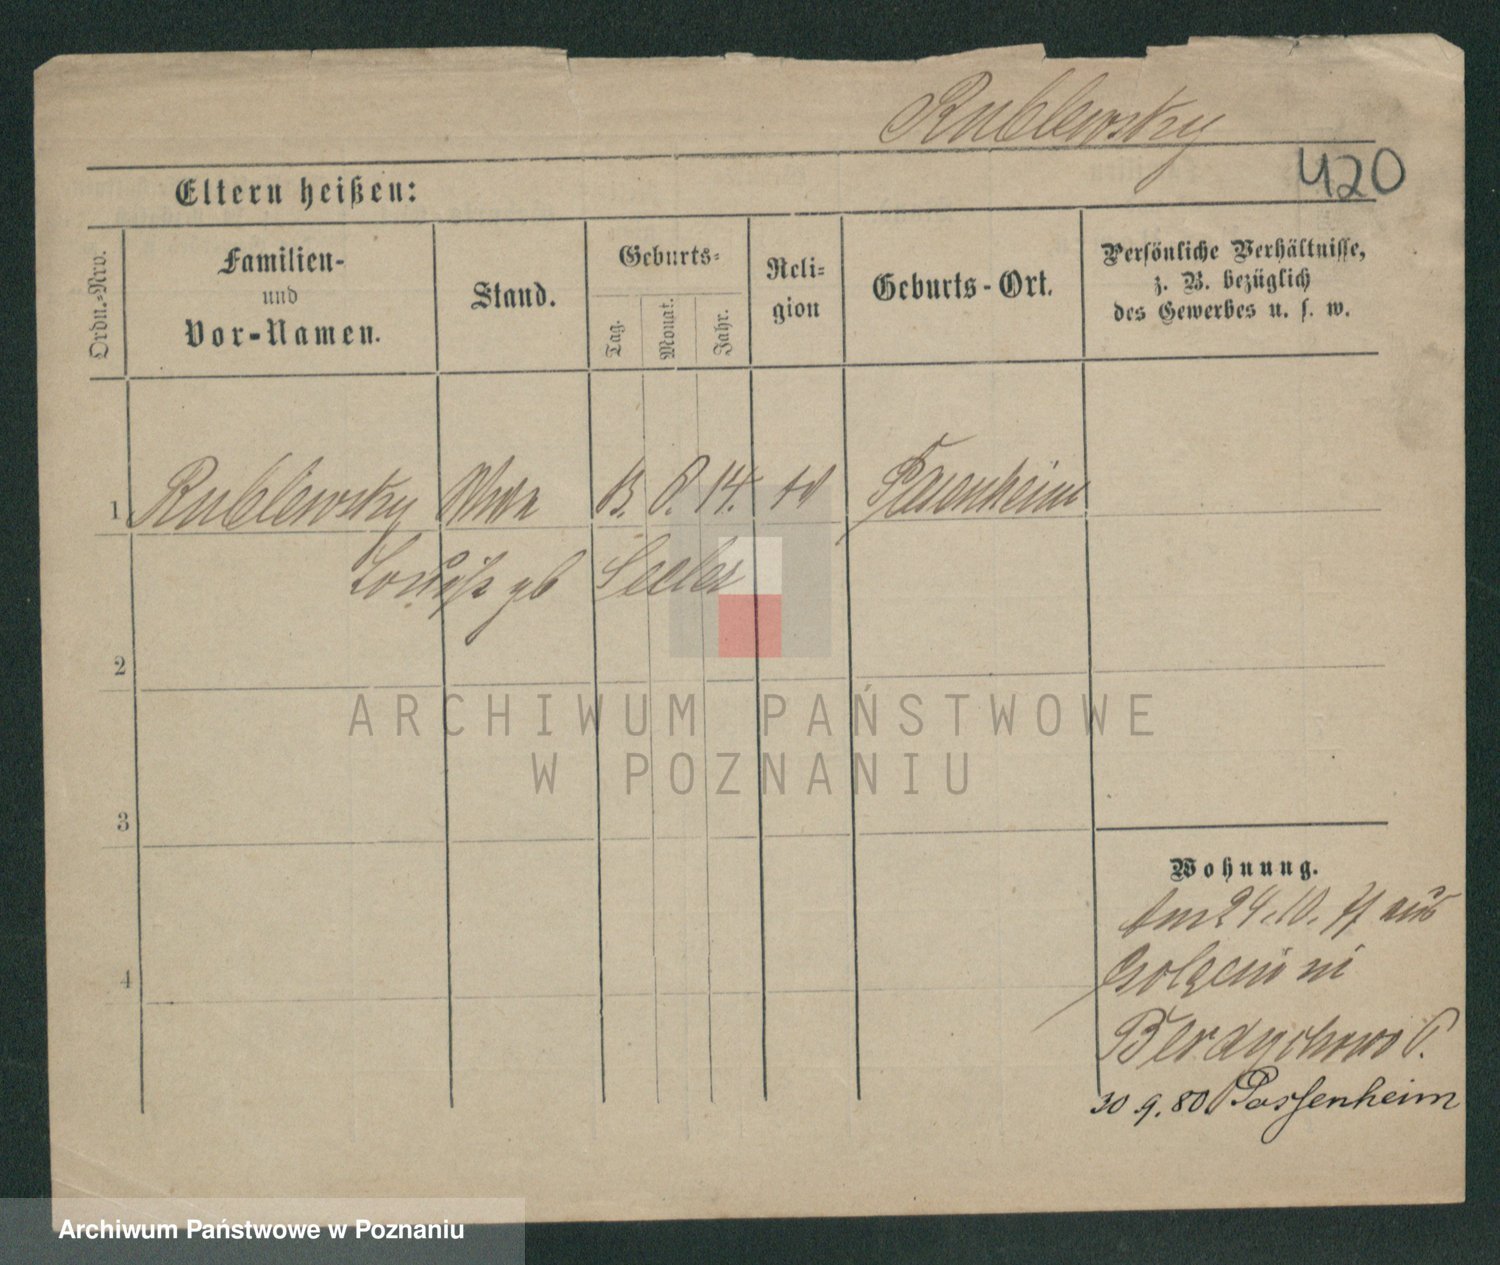 Rublewsky
420
Eltern heißen:
Ordn.-Nro.
Familien-
und
Vor-Namen.
Stand.
Geburts-
Tag.
Monat.
Jahr.
Reli-
gion
Geburts-Ort.
Persönliche Verhältnisse,
z. B. bezüglich
des Gewerbes u. s. w.
1 Rublewsky Wwe 13. 8. 14. ev
Louise gb Seeler
2
3
4
Wohnung.
Am 24.10. 77 aus
in
Berdychowo
30 9. 80 Passenheim
ARCHIWUM PAŃSTWOWE
W POZNANIU
Archiwum Państwowe w Poznaniu